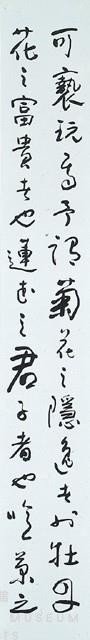 可褻玩焉予謂菊花之隱逸者也牡丹
花之富貴者也蓮花之君子者也噫菊之
MUSEUM